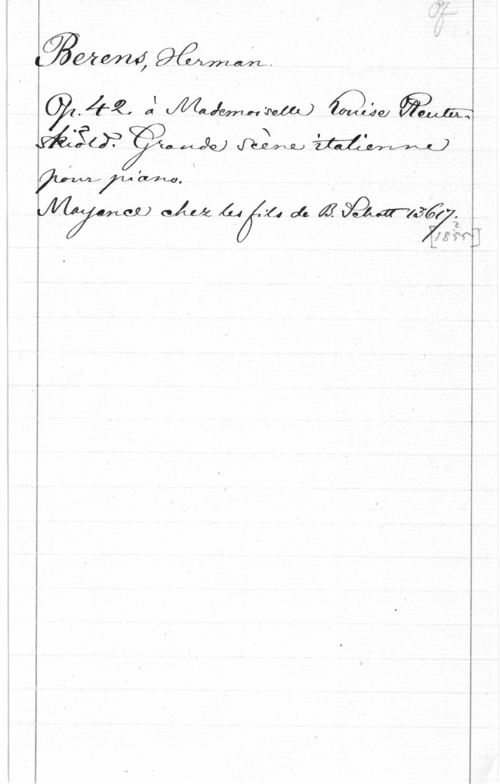 Of
Berens, Herman.
Op. 42. à Mademoiselle Louise Reuter-
skiöld. Grande scène italienne
pour piano.
Mayence chez les fils de B. Schott 13617.
[1855²]